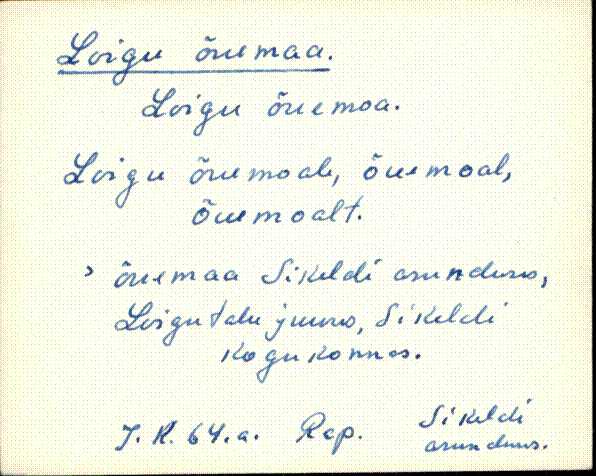 Loigu õuemaa.
Loigu õuemoa.
Loigu õuemoale, õuemoal,
õuemoalt.
› õuemaa Sikeldi asunduses,
Loigu talu juures, Sikeldi
kogukonnas.
J. K. 64. a. Rap. Sikeldi
asunduses.